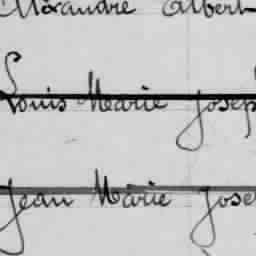 Alexandre Albert
Louis Marie Josep
Jean Marie Jose